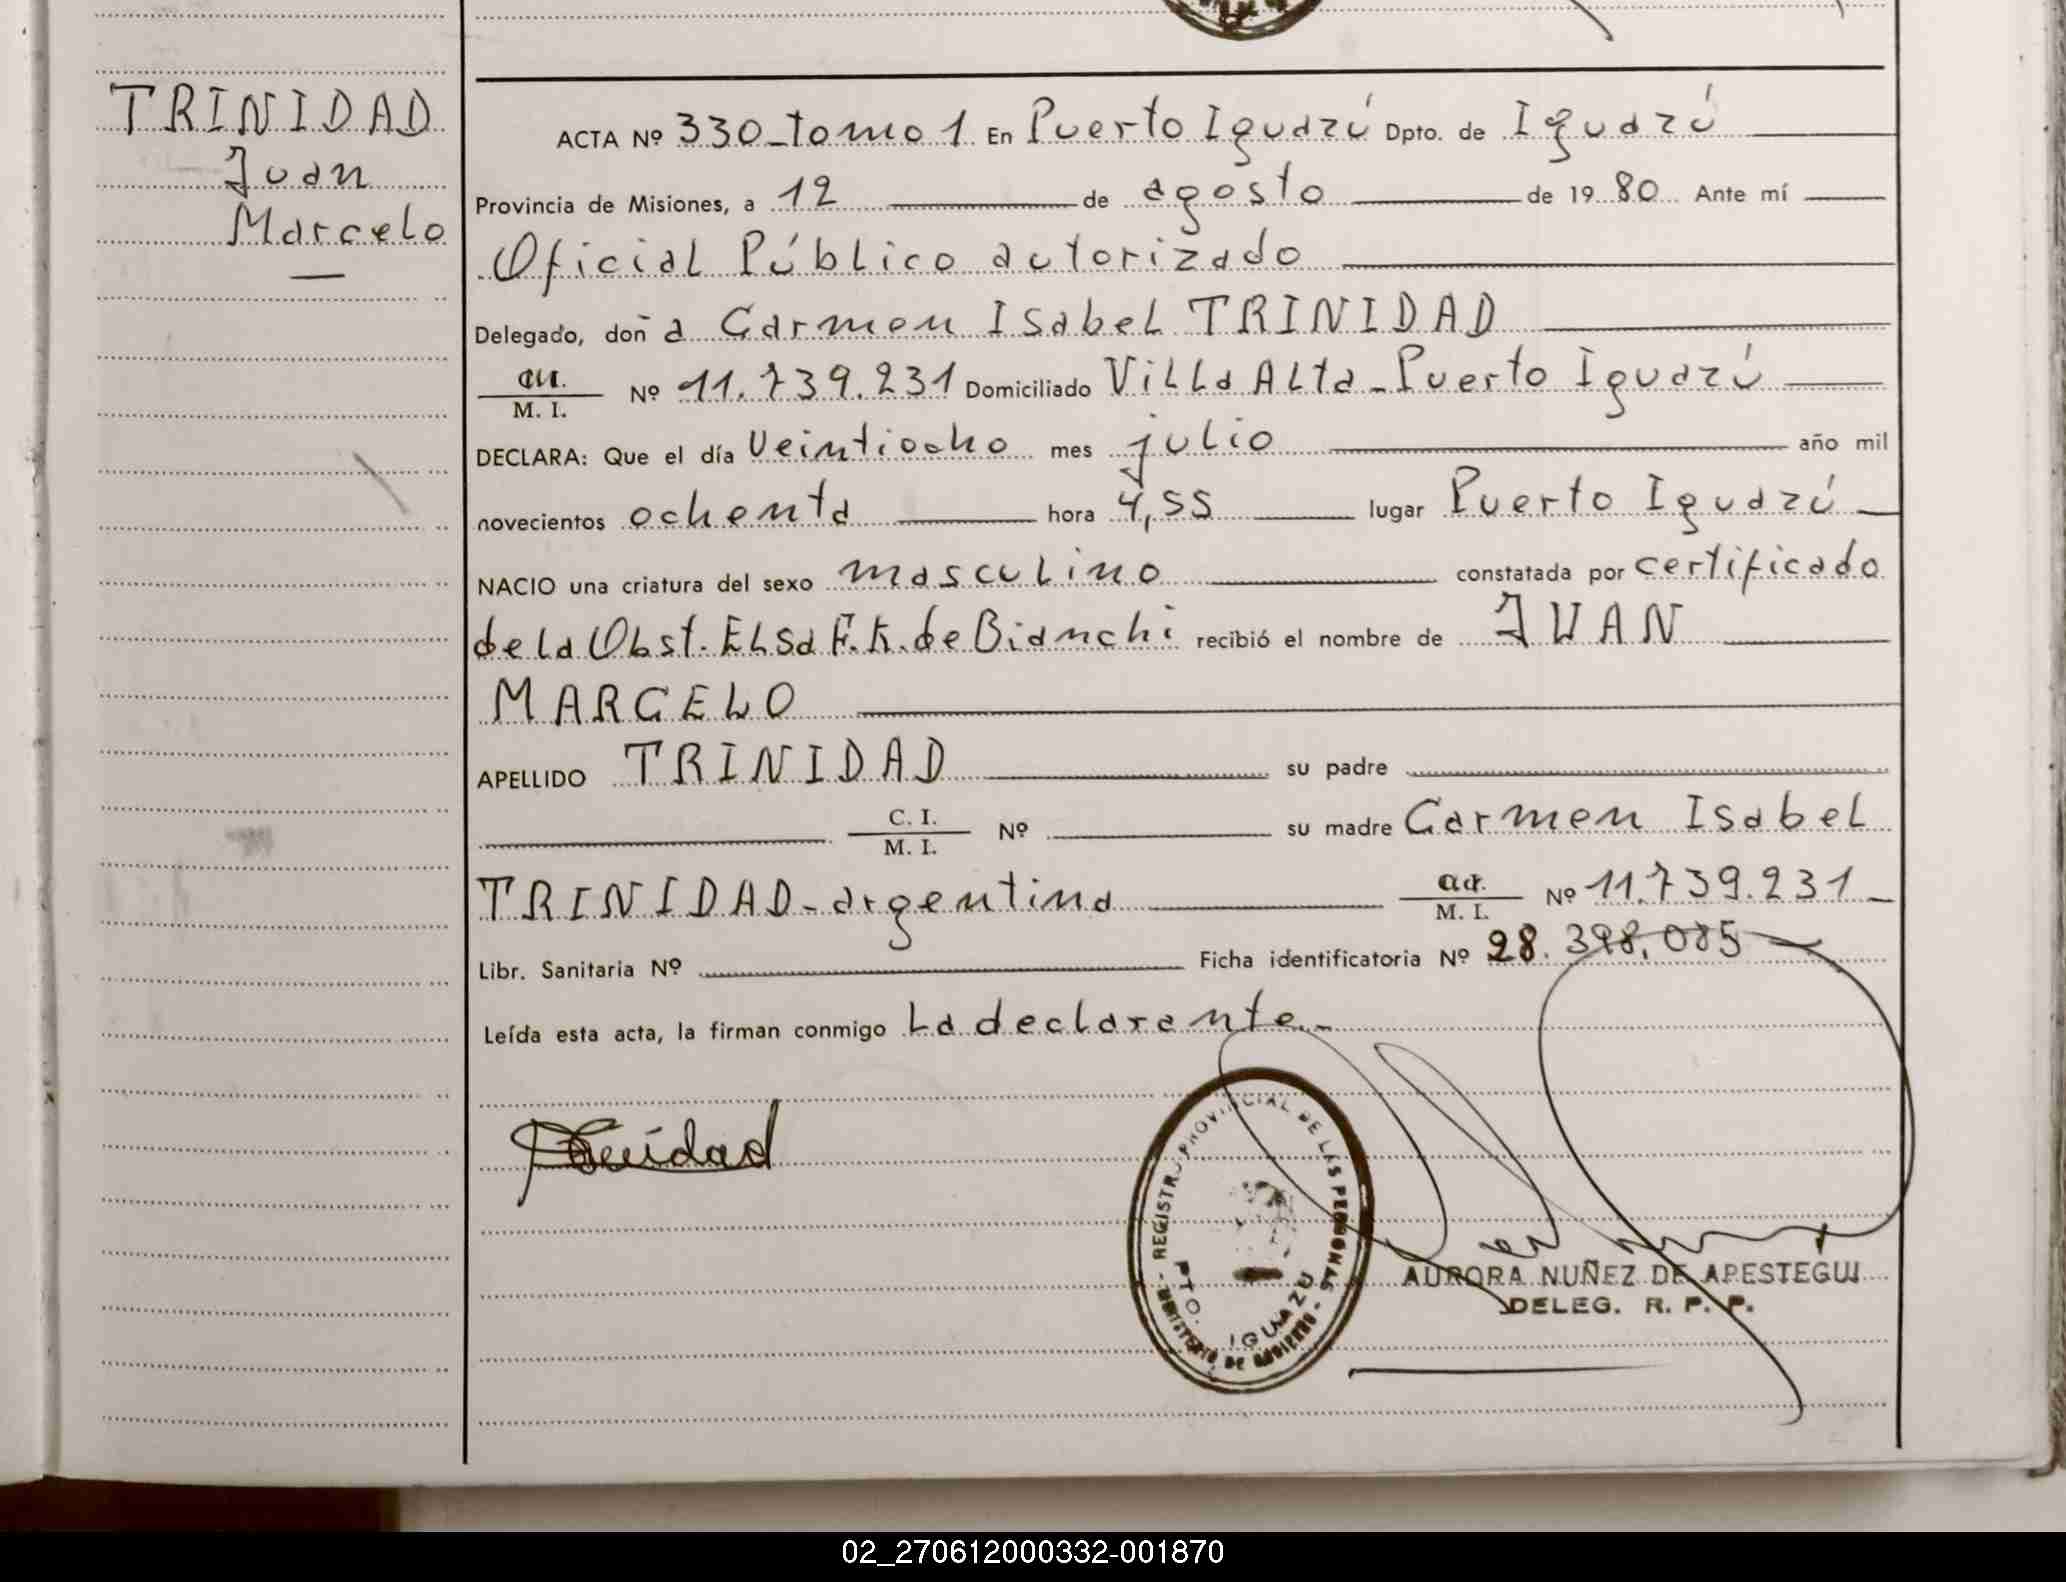 TRINIDAD
Juan
Marcelo
ACTA Nº 330-tomo 1 En Puerto Iguazú Dpto. de Iguazú
Provincia de Misiones, a 12 de agosto de 1980 Ante mí
Oficial Público autorizado
Delegado, doña Carmen Isabel TRINIDAD
M. I. Nº 11.739.231 Domiciliado Villa Alta - Puerto Iguazú
DECLARA: Que el día veintiocho mes julio año mil
novecientos ochenta hora 4,55 lugar Puerto Iguazú
NACIO una criatura del sexo masculino constatada por certificado
de la Obst. Elsa F. K. de Bianchi recibió el nombre de JUAN
MARCELO
APELLIDO TRINIDAD su padre
C. I.
M. I. Nº su madre Carmen Isabel
TRINIDAD - argentina M. I. Nº 11.739.231
Libr. Sanitaria Nº Ficha identificatoria Nº 28.398.085
Leída esta acta, la firman conmigo La declarante.-
Trinidad
REGISTRO PROVINCIAL DE LAS PERSONAS - MINISTERIO DE GOBIERNO -
PTO. IGUAZU
AURORA NUÑEZ DE APESTEGUI
DELEG. R. P. P.
02_270612000332-001870